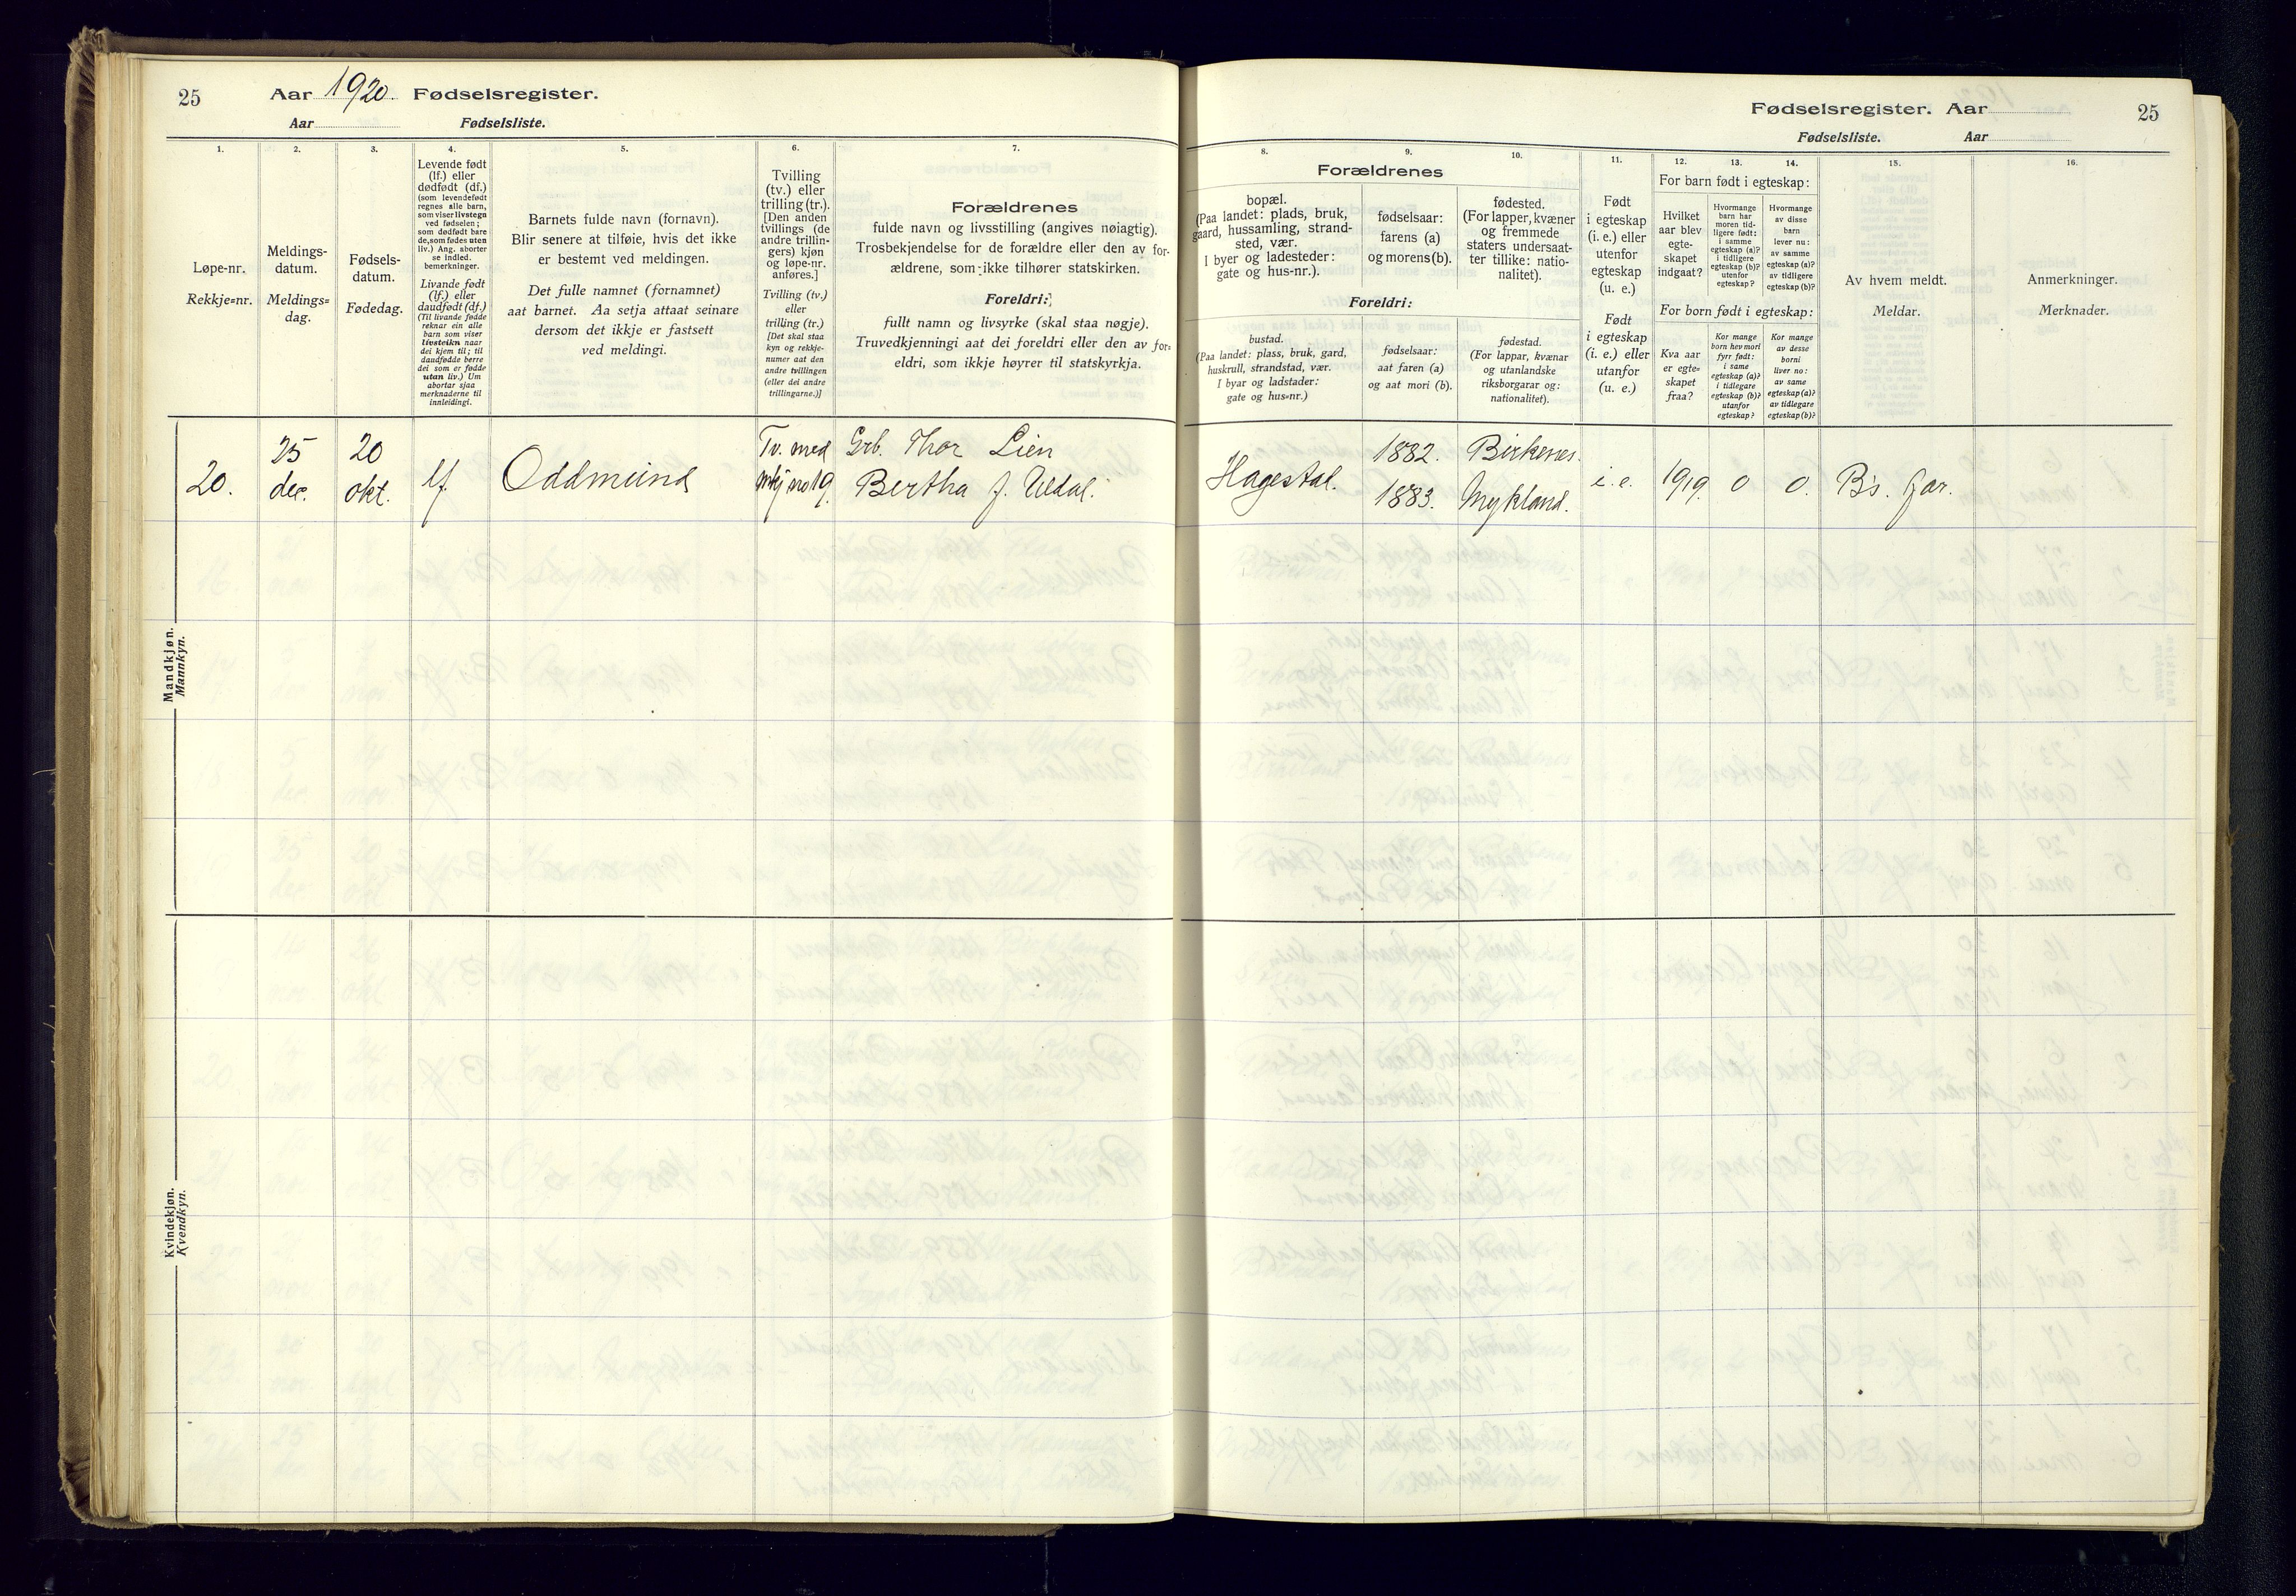 25
Aar 1920. Fødselsregister.
Aar Fødselsliste.
1.
2.
3.
4.
5.
6.
7.
Løpe-nr.
Rekkje=nr.
Meldings-
datum.
Meldings=
dag.
Fødsels-
datum.
Fødedag.
Levende født
(lf.) eller
dødfødt (df.)
(som levendefødt
regnes alle barn,
som viser livstegn
ved fødselen;
som dødfødt bare
de, som fødes uten
liv.) Ang. aborter
se indled.
bemerkninger.
Livande født
(lf.) eller
daudfødt (df.)
(Til livande fødde
reknar ein alle
barn som viser
livsteikn naar
dei kjem til; til
daudfødde berre
dei som er fødde
utan liv.) Um
abortar sjaa
merknaderne til
innleidingi.
Barnets fulde navn (fornavn).
Blir senere at tilføie, hvis det ikke
er bestemt ved meldingen.
Det fulle namnet (fornamnet)
aat barnet. Aa setja attaat seinare
dersom det ikkje er fastsett
ved meldingi.
Tvilling
(tv.) eller
trilling (tr.).
[Den anden
tvillings (de
andre trillin-
gers) kjøn
og løpe-nr.
anføres.]
Tvilling (tv.)
eller
trilling (tr.)
[Det skal staa
kyn og rekkje-
numer aat den
andre tvillingen
(eller dei andre
trillingarne.)]
Forældrenes
fulde navn og livsstilling (angives nøiagtig).
Trosbekjendelse for de forældre eller den av for-
ældrene, som ikke tilhører statskirken.
Foreldri:
fullt namn og livsyrke (skal staa nøgje).
Truvedkjenningi aat dei foreldri eller den av for-
eldri, som ikkje høyrer til statskyrkja.
20.
25
dec.
20
okt.
lf.
Oddmund
Tv. med
mkj no 19.
Grb. Thor Lien
Bertha f. Uldal.
Mandkjøn.
Mannkyn.
Kvindekjøn.
Kvendkyn.
Fødselsregister. Aar
25
Fødselsliste. Aar
8.
9.
10.
11.
12.
13.
14.
15.
16.
Forældrenes
bopæl.
(Paa landet: plads, bruk,
gaard, hussamling, strand-
sted, vær.
I byer og ladesteder:
gate og hus-nr.).
fødselsaar:
farens (a)
og morens (b).
fødested.
(For lapper, kvæner
og fremmede
staters undersaat-
ter tillike: natio-
nalitet).
Foreldri:
bustad.
(Paa landet: plass, bruk, gard,
huskrull, strandstad, vær.
I byar og ladstader:
gate og hus=nr.)
fødselsaar:
aat faren (a)
og aat mori (b).
fødestad.
(For lappar, kvænar
og utanlandske
riksborgarar og:
nationalitet).
Født
i egteskap
(i. e.) eller
utenfor
egteskap
(u. e.)
Født
i egteskap
(i. e.) eller
utanfor
(u. e.)
For barn født i egteskap:
Hvilket
aar blev
egte-
skapet
indgaat?
Hvormange
barn har
moren tid-
ligere født:
i samme
egteskap (a)?
i tidligere
egteskap (b)?
utenfor
egteskap?
Hvormange
av disse
barn
lever nu:
av samme
egteskap (a)?
av tidligere
egteskap (b)?
For born født i egteskap:
Kva aar
er egte=
skapet
fraa?
Kor mange
born hev mori
fyrr født:
i same
egteskap (a)?
i tidlegare
egteskap (b)?
utanfor
egteskap?
Kor mange
av desse
borni
liver no:
av same
egteskap (a)?
av tidlegare
egteskap (b)?
Av hvem meldt.
Meldar.
Anmerkninger.
Merknader.
Hagestal.
1882.
1883.
Birkenes.
Mykland.
i. e.
1919.
0
0.
B's. far.